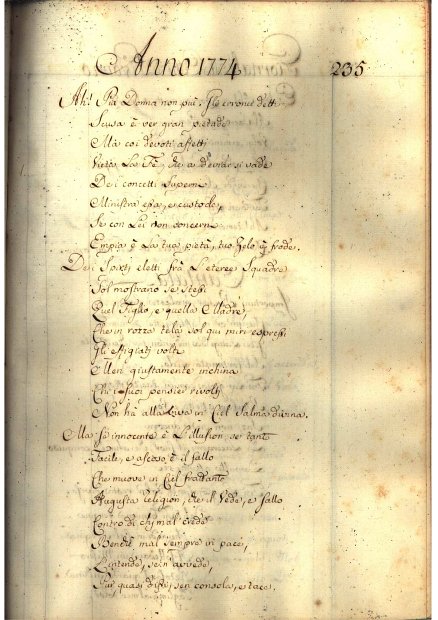 Anno 1774
235
Ah! Pia Donna non più: Gl'e coronce detti
Scusa è ver gran pietade
Mà coi devoti affetti
Vieta La Fè, che a dovrar si vade
Dei concetti Superni
Ministra essa, e custode,
Se con Lei non concerni
Empia è La tua pietà, tuo Zelo è frode.
Dei Spirti eletti frà L'eteree Squadre
Sol mostrano se stessi
Quel Figlio, e quella Madre
Che in rozza tela sol qui miri espressi
Gli effigiati volti
Men giustamente inchina
Chi i suoi pensier rivolti
Non hà alla viva in Ciel Salma divina.
Ma sì innocente è L'illusion, se tanto
Facile, e ascoso è il fallo
Che muove in Ciel frattanto
Augusta religion, che il Vede, e sallo
Contro di chi mal crede
Benchè mal sempre in pace,
L'intende, se'n avvede,
Pur quasi sen consola, e tace.